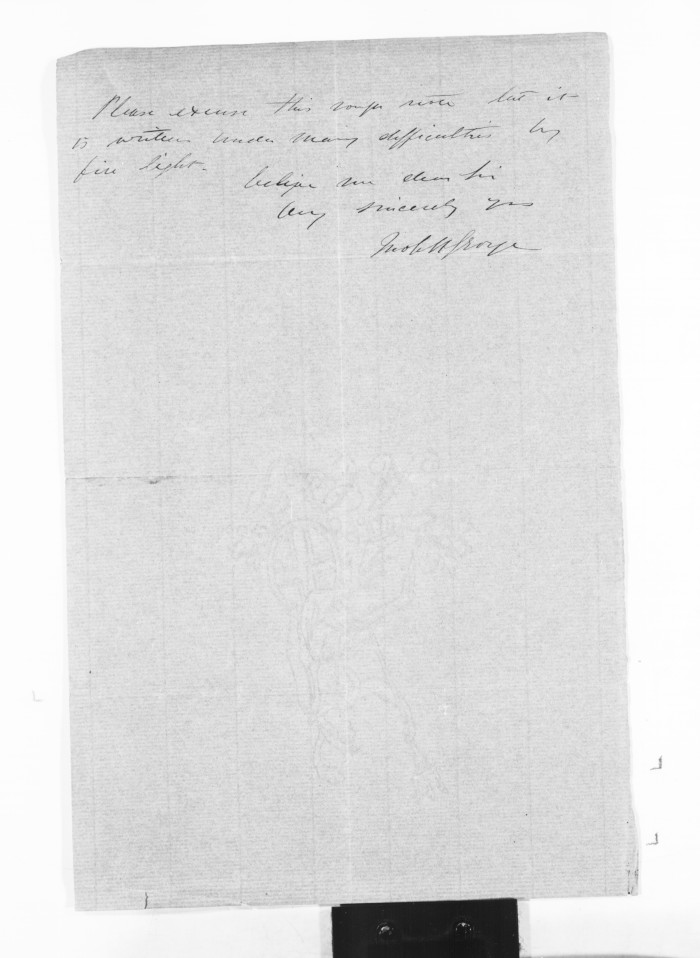 Please excuse this rough note but it
is written under many difficulties by
fire light.
believe me dear Sir
Very sincerely yrs
George